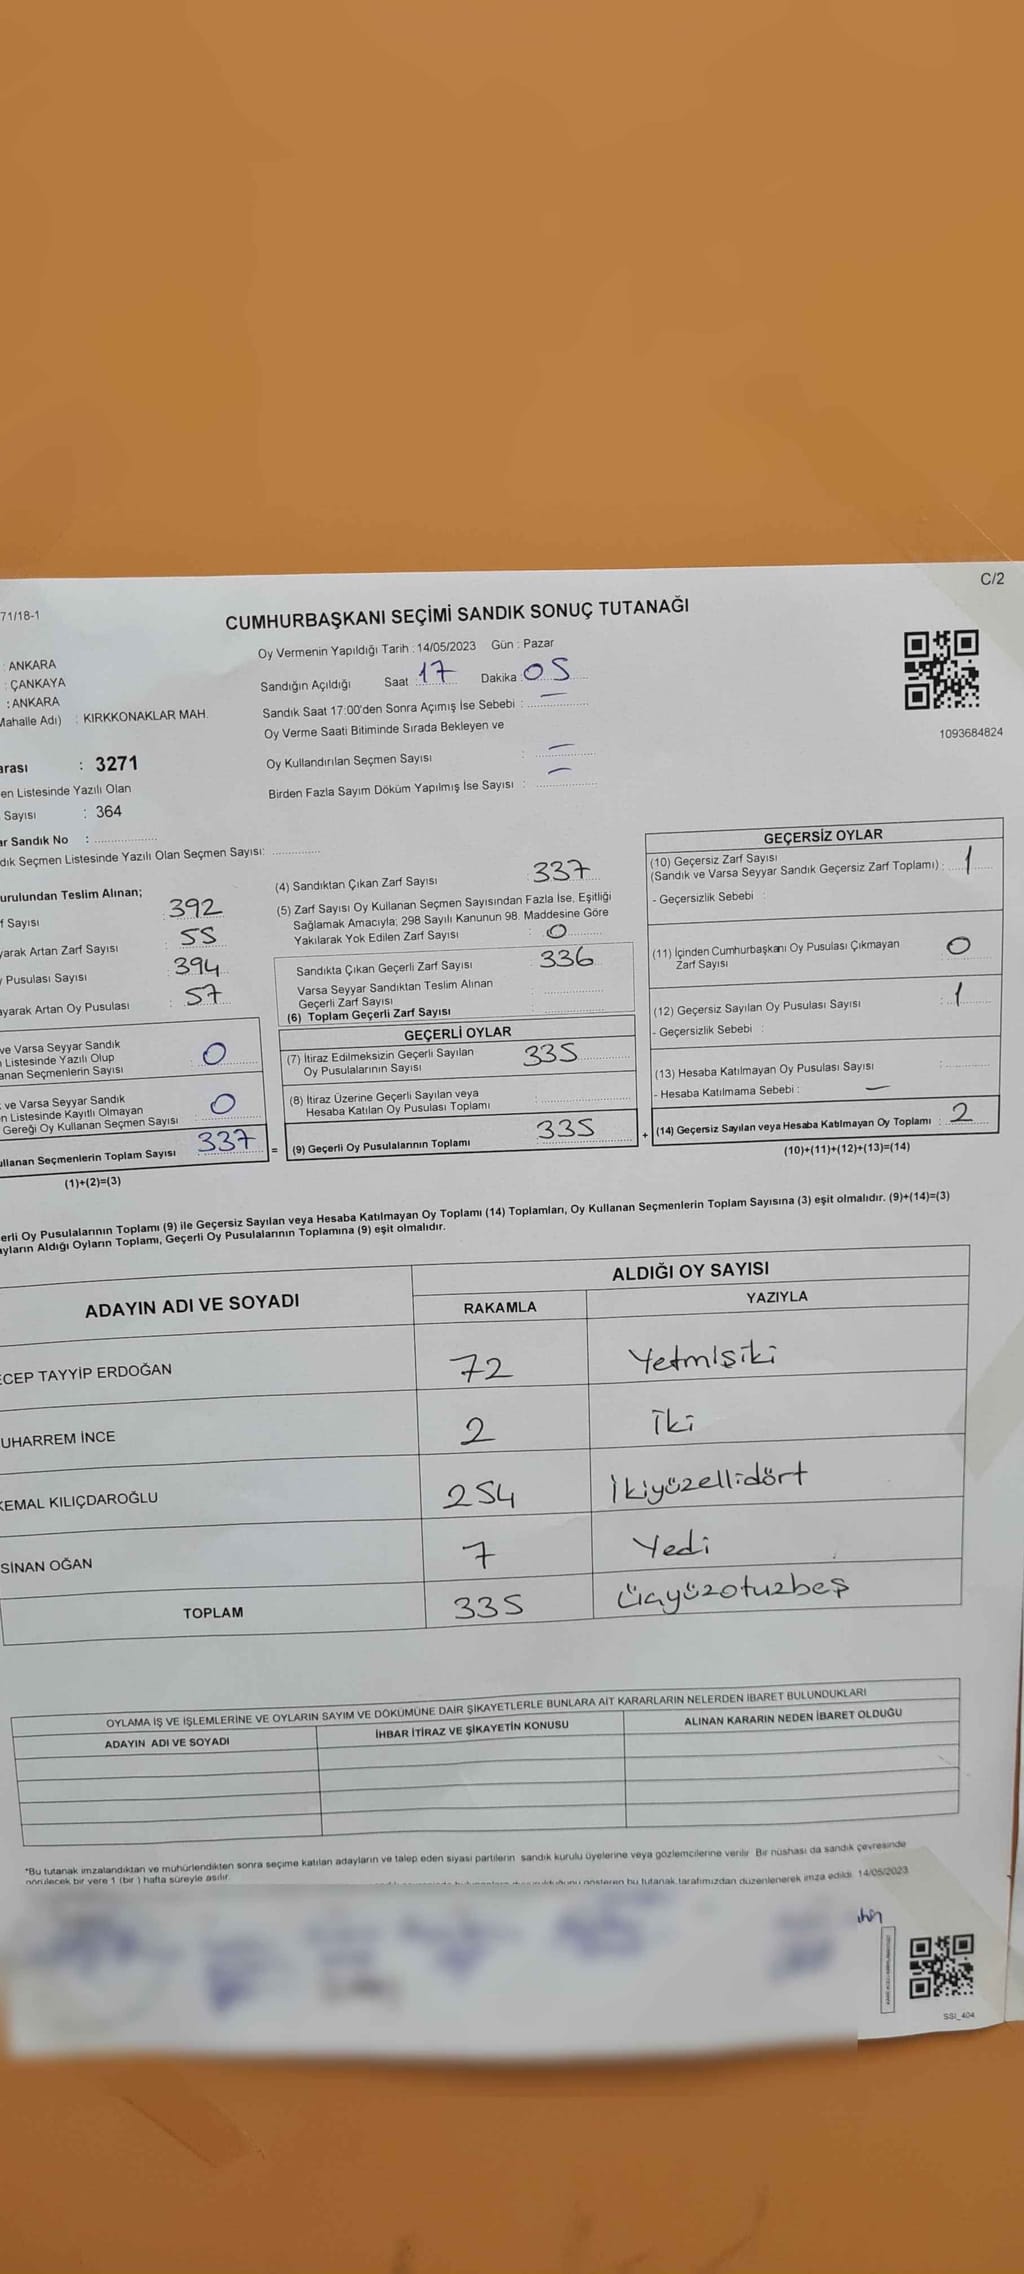 C/2
71/18-1
CUMHURBAŞKANI SEÇİMİ SANDIK SONUÇ TUTANAĞI
: ANKARA
: ÇANKAYA
: ANKARA
Mahalle Adı) : KIRKKONAKLAR MAH.
arası : 3271
en Listesinde Yazılı Olan
Sayısı : 364
ar Sandık No : ....................
dık Seçmen Listesinde Yazılı Olan Seçmen Sayısı: ...............
Oy Vermenin Yapıldığı Tarih : 14/05/2023 Gün : Pazar
Sandığın Açıldığı Saat 17 Dakika : 05
Sandık Saat 17:00'den Sonra Açımış İse Sebebi : —
Oy Verme Saati Bitiminde Sırada Bekleyen ve
Oy Kullandırılan Seçmen Sayısı : —
Birden Fazla Sayım Döküm Yapılmış İse Sayısı : —
1093684824
urulundan Teslim Alınan;
f Sayısı : 392
yarak Artan Zarf Sayısı : 55
y Pusulası Sayısı : 394
ayarak Artan Oy Pusulası : 57
ve Varsa Seyyar Sandık
n Listesinde Yazılı Olup
anan Seçmenlerin Sayısı : 0
ve Varsa Seyyar Sandık
n Listesinde Kayıtlı Olmayan
Gereği Oy Kullanan Seçmen Sayısı : 0
ullanan Seçmenlerin Toplam Sayısı : 337
(1)+(2)=(3)
(4) Sandıktan Çıkan Zarf Sayısı : 337
(5) Zarf Sayısı Oy Kullanan Seçmen Sayısından Fazla İse, Eşitliği
Sağlamak Amacıyla; 298 Sayılı Kanunun 98. Maddesine Göre
Yakılarak Yok Edilen Zarf Sayısı : 0
Sandıkta Çıkan Geçerli Zarf Sayısı : 336
Varsa Seyyar Sandıktan Teslim Alınan
Geçerli Zarf Sayısı
(6) Toplam Geçerli Zarf Sayısı
GEÇERLİ OYLAR
(7) İtiraz Edilmeksizin Geçerli Sayılan
Oy Pusulalarının Sayısı : 335
(8) İtiraz Üzerine Geçerli Sayılan veya
Hesaba Katılan Oy Pusulası Toplamı :
= (9) Geçerli Oy Pusulalarının Toplamı : 335 +
GEÇERSİZ OYLAR
(10) Geçersiz Zarf Sayısı
(Sandık ve Varsa Seyyar Sandık Geçersiz Zarf Toplamı) : 1
- Geçersizlik Sebebi :
(11) İçinden Cumhurbaşkanı Oy Pusulası Çıkmayan
Zarf Sayısı : 0
(12) Geçersiz Sayılan Oy Pusulası Sayısı : 1
- Geçersizlik Sebebi :
(13) Hesaba Katılmayan Oy Pusulası Sayısı :
- Hesaba Katılmama Sebebi : —
(14) Geçersiz Sayılan veya Hesaba Katılmayan Oy Toplamı : 2
(10)+(11)+(12)+(13)=(14)
erli Oy Pusulalarının Toplamı (9) ile Geçersiz Sayılan veya Hesaba Katılmayan Oy Toplamı (14) Toplamları, Oy Kullanan Seçmenlerin Toplam Sayısına (3) eşit olmalıdır. (9)+(14)=(3)
ayların Aldığı Oyların Toplamı, Geçerli Oy Pusulalarının Toplamına (9) eşit olmalıdır.
ADAYIN ADI VE SOYADI
ALDIĞI OY SAYISI
RAKAMLA YAZIYLA
ECEP TAYYİP ERDOĞAN 72 Yetmişiki
UHARREM İNCE 2 İki
KEMAL KILIÇDAROĞLU 254 İkiyüzellidört
SİNAN OĞAN 7 Yedi
TOPLAM 335 Üçyüzotuzbeş
OYLAMA İŞ VE İŞLEMLERİNE VE OYLARIN SAYIM VE DÖKÜMÜNE DAİR ŞİKAYETLERLE BUNLARA AİT KARARLARIN NELERDEN İBARET BULUNDUKLARI
ADAYIN ADI VE SOYADI İHBAR İTİRAZ VE ŞİKAYETİN KONUSU ALINAN KARARIN NEDEN İBARET OLDUĞU
*Bu tutanak imzalandıktan ve mühürlendikten sonra seçime katılan adayların ve talep eden siyasi partilerin sandık kurulu üyelerine veya gözlemcilerine verilir. Bir nüshası da sandık çevresinde
görülecek bir yere 1 (bir ) hafta süreyle asılır.
gösteren bu tutanak tarafımızdan düzenlenerek imza edildi. 14/05/2023
SSI_404